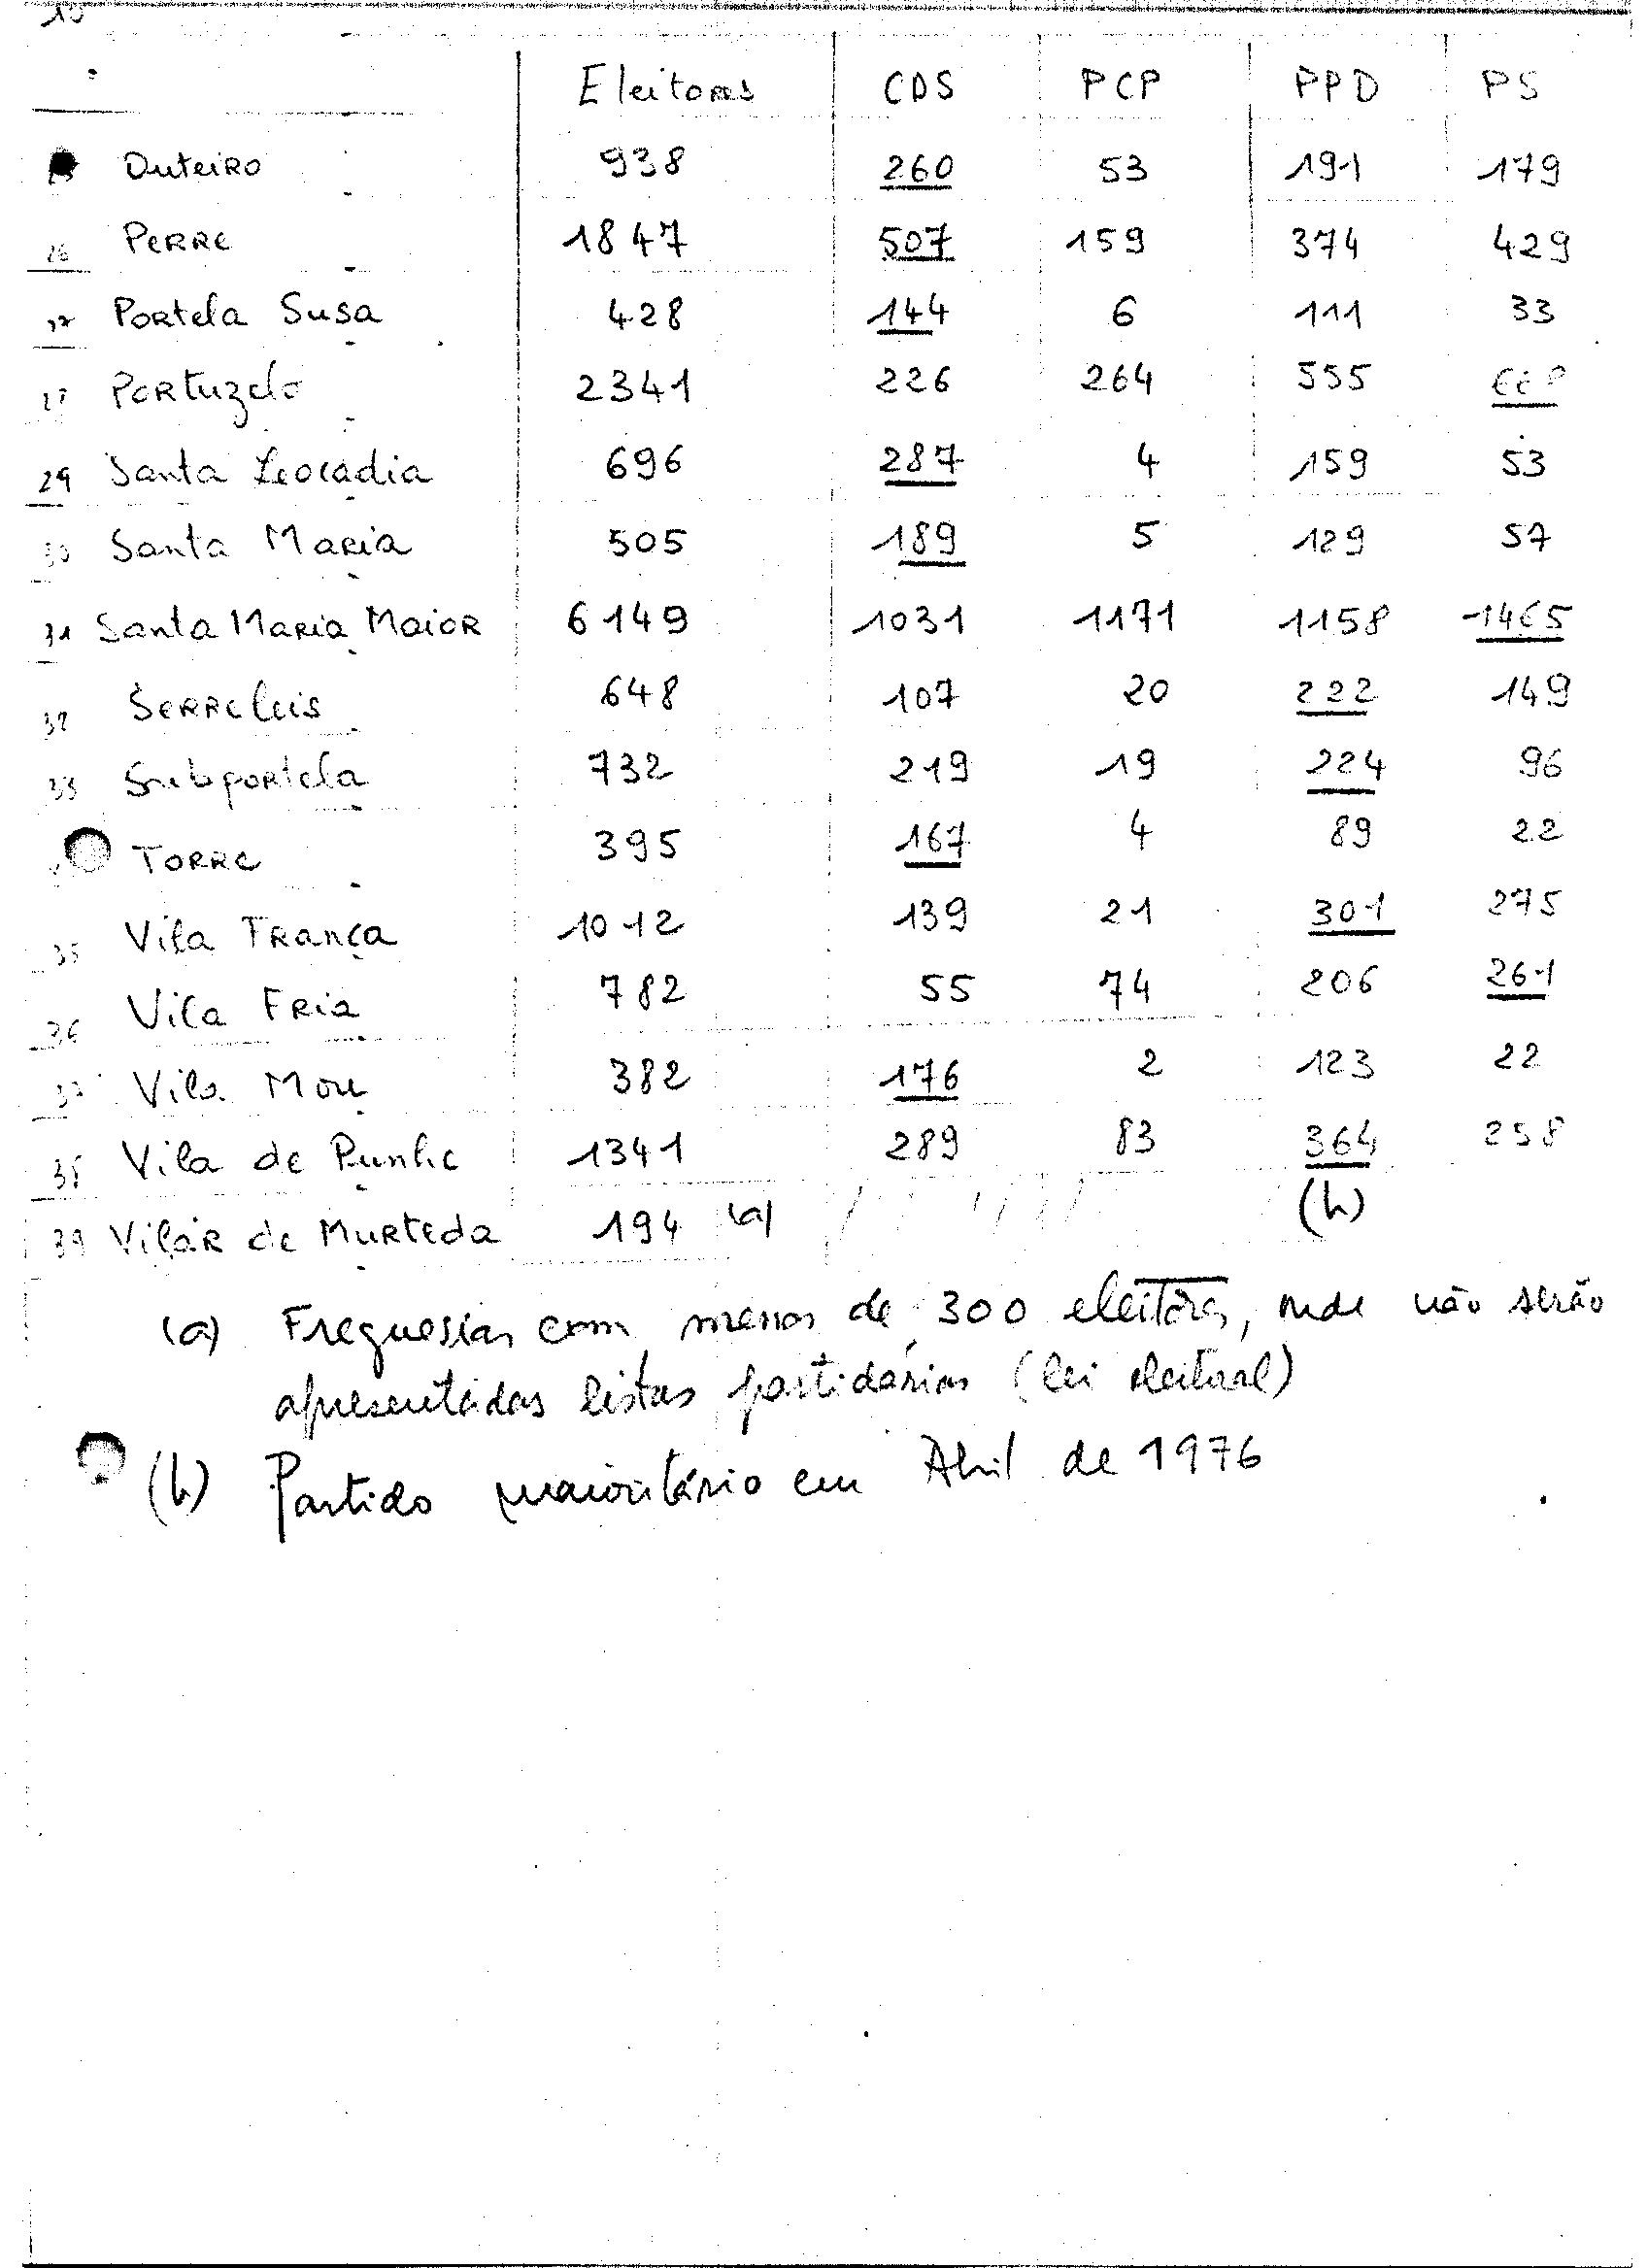 Eleitores CDS PCP PPD PS
Outeiro 938 260 53 191 179
26 Perre 1847 507 159 374 429
Portela Susa 428 144 6 111 33
Portuzelo 2341 226 264 555
29 Santa Leocadia 696 287 4 159 53
30 Santa Maria 505 189 5 129 57
31 Santa Maria Maior 6149 1031 1171 1158 1465
32 Serreleis 648 107 20 222 149
33 Subportela 732 219 19 224 96
Torre 395 167 4 89 22
35 Vila Franca 1012 139 21 301 275
36 Vila Fria 782 55 74 206 261
37 Vila Mou 382 176 2 123 22
38 Vila de Punhe 1341 289 83 364 258
39 Vilar de Murteda 194 (a) (b)
(a) Freguesias com menos de 300 eleitores, onde não serão
apresentadas listas partidárias (lei eleitoral)
(b) Partido maioritário em Abril de 1976